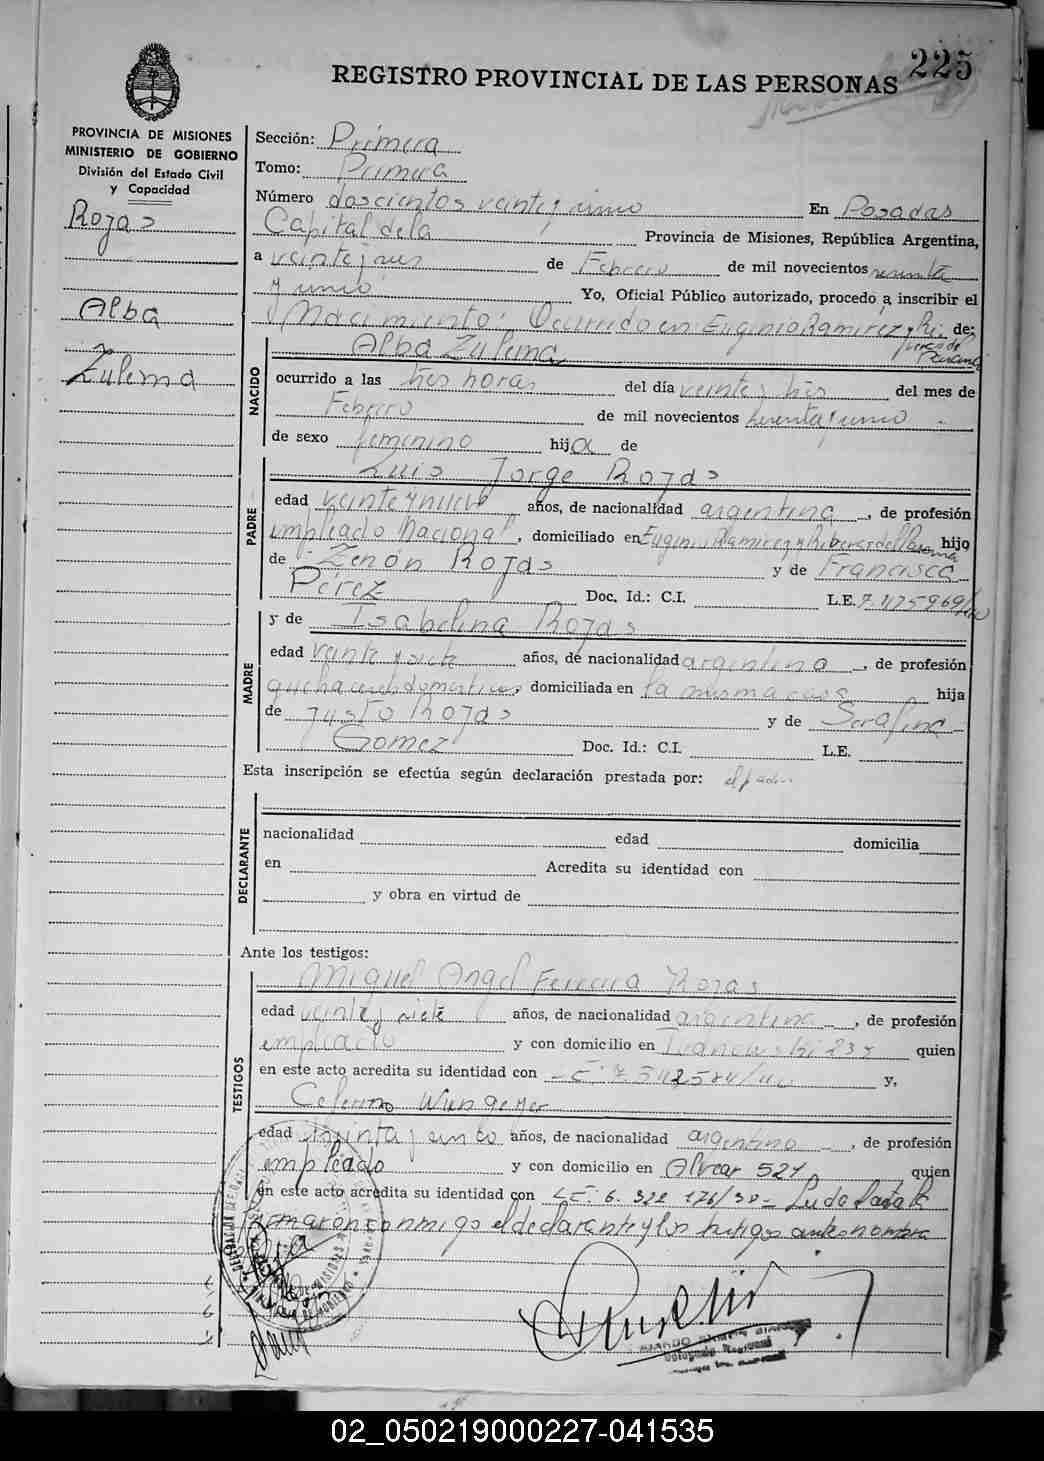 225
REGISTRO PROVINCIAL DE LAS PERSONAS
PROVINCIA DE MISIONES
MINISTERIO DE GOBIERNO
División del Estado Civil
y Capacidad
Rojas
Alba
Zulema
Sección: Primera
Tomo: Primera
Número doscientos veinte y cinco En Posadas
Capital de la Provincia de Misiones, República Argentina,
a veinte y seis de Febrero de mil novecientos sesenta
y uno Yo, Oficial Público autorizado, procedo a inscribir el
Nacimiento: Ocurrido en Eugenio Ramirez y Ri de:
veras del Paraná
NACIDO
Alba Zulema
ocurrido a las tres horas del día veinte y tres del mes de
Febrero de mil novecientos sesenta y uno
de sexo femenino hija de
PADRE
Luis Jorge Rojas
edad veinte y nueve años, de nacionalidad argentina, de profesión
empleado Nacional, domiciliado en Eugenio Ramirez y Riveras del Paraná hijo
de Zenón Rojas y de Francisca
Pérez Doc. Id.: C.I. L.E.
MADRE
y de Isabelina Rojas
edad veinte y siete años, de nacionalidad argentina, de profesión
quehaceres domésticos, domiciliada en la misma casa hija
de Justo Rojas y de Serafina
Gomez Doc. Id.: C.I. L.E.
Esta inscripción se efectúa según declaración prestada por: el padre
DECLARANTE
nacionalidad edad domicilia
en Acredita su identidad con
y obra en virtud de
Ante los testigos:
TESTIGOS
Miguel Angel Ferreira Rojas
edad veinte y siete años, de nacionalidad argentina, de profesión
empleado y con domicilio en 235 quien
en este acto acredita su identidad con y,
Ceferino
edad años, de nacionalidad argentino, de profesión
empleado y con domicilio en Alvear 527 quien
en este acto acredita su identidad con LE: 6.322.176/30 - Leida la
firmaron conmigo el declarante y los testigos antes nombra
02_050219000227-041535